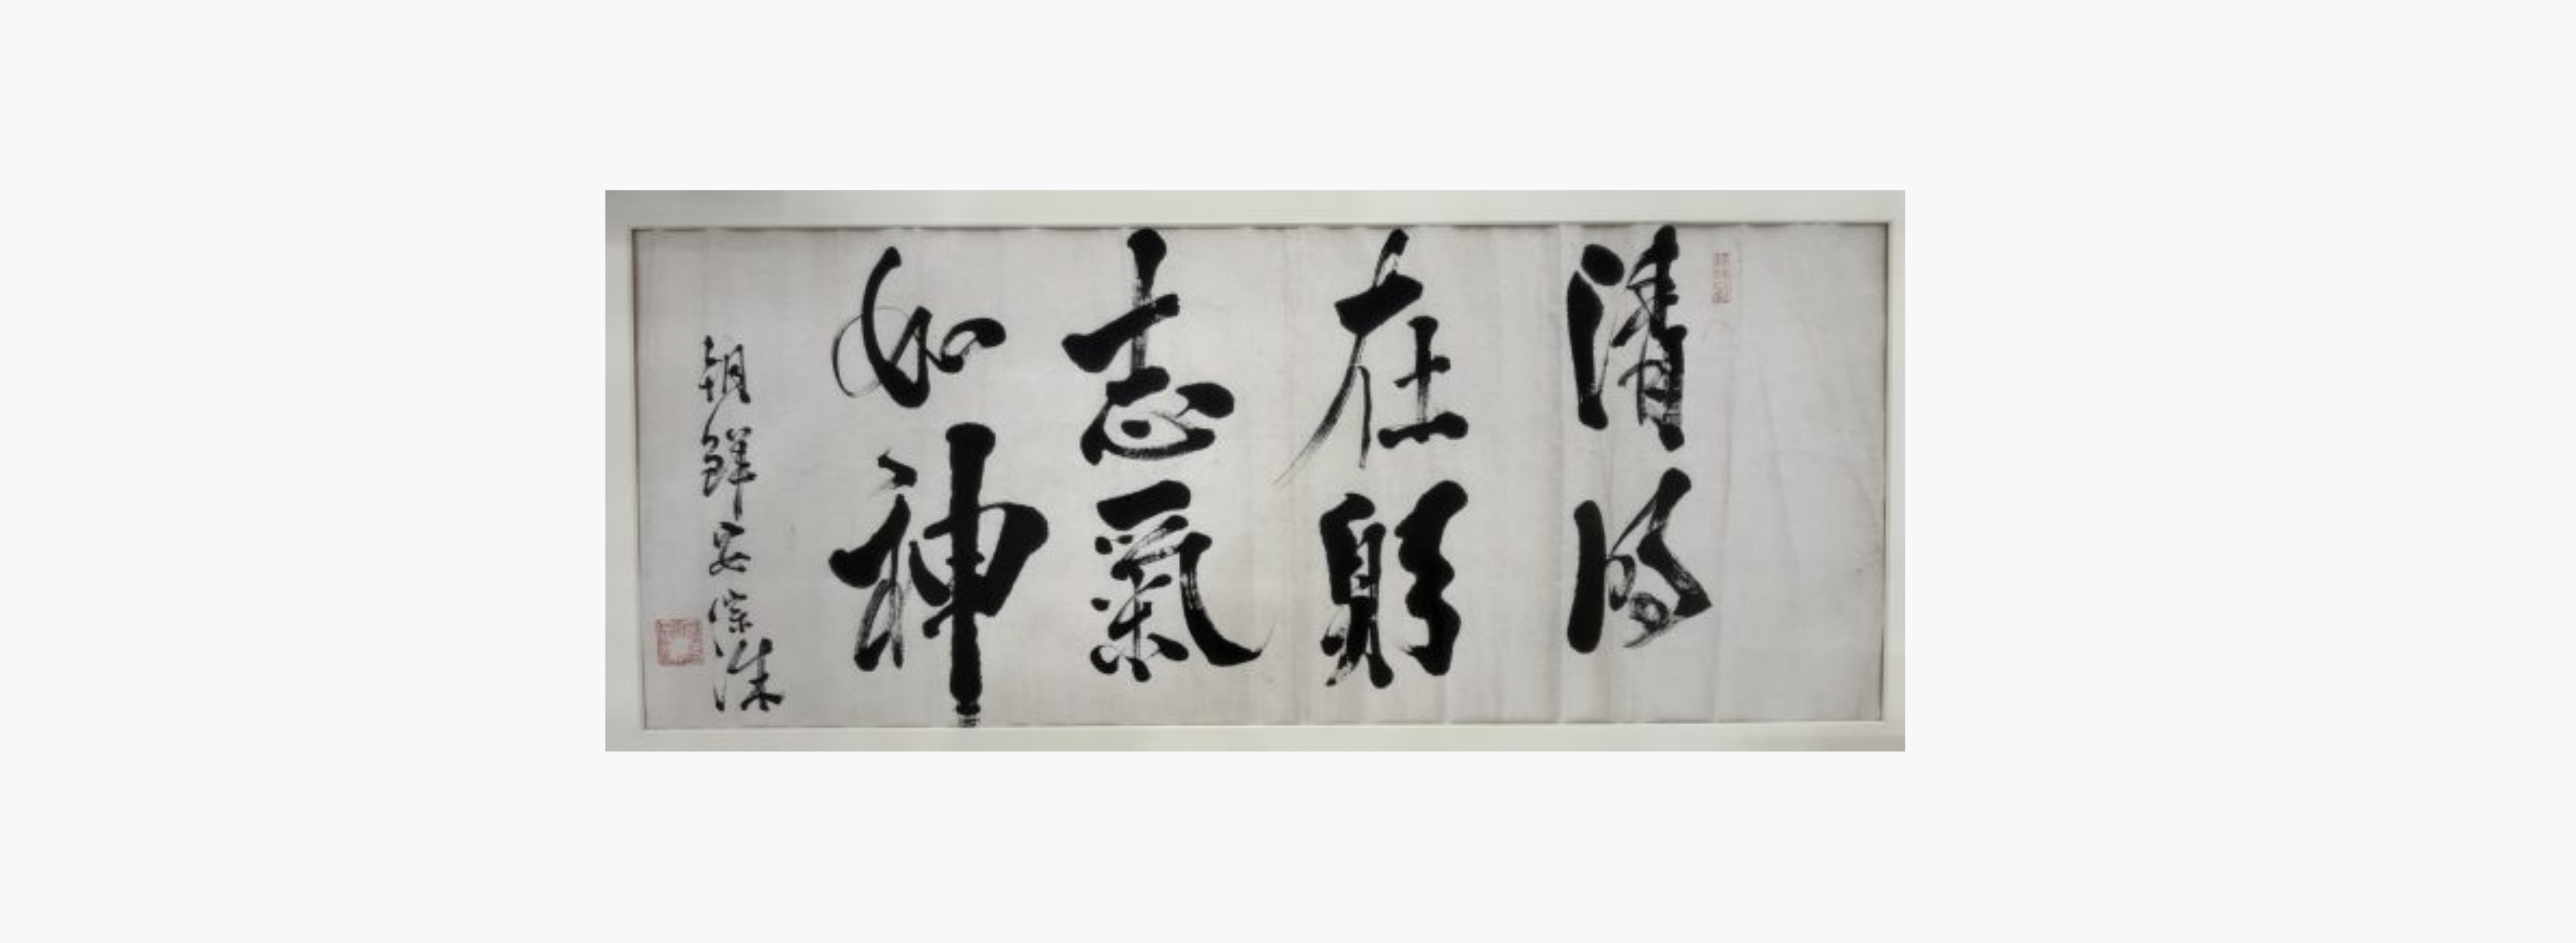 清明
在躬
志氣
如神
朝鮮安宗洙